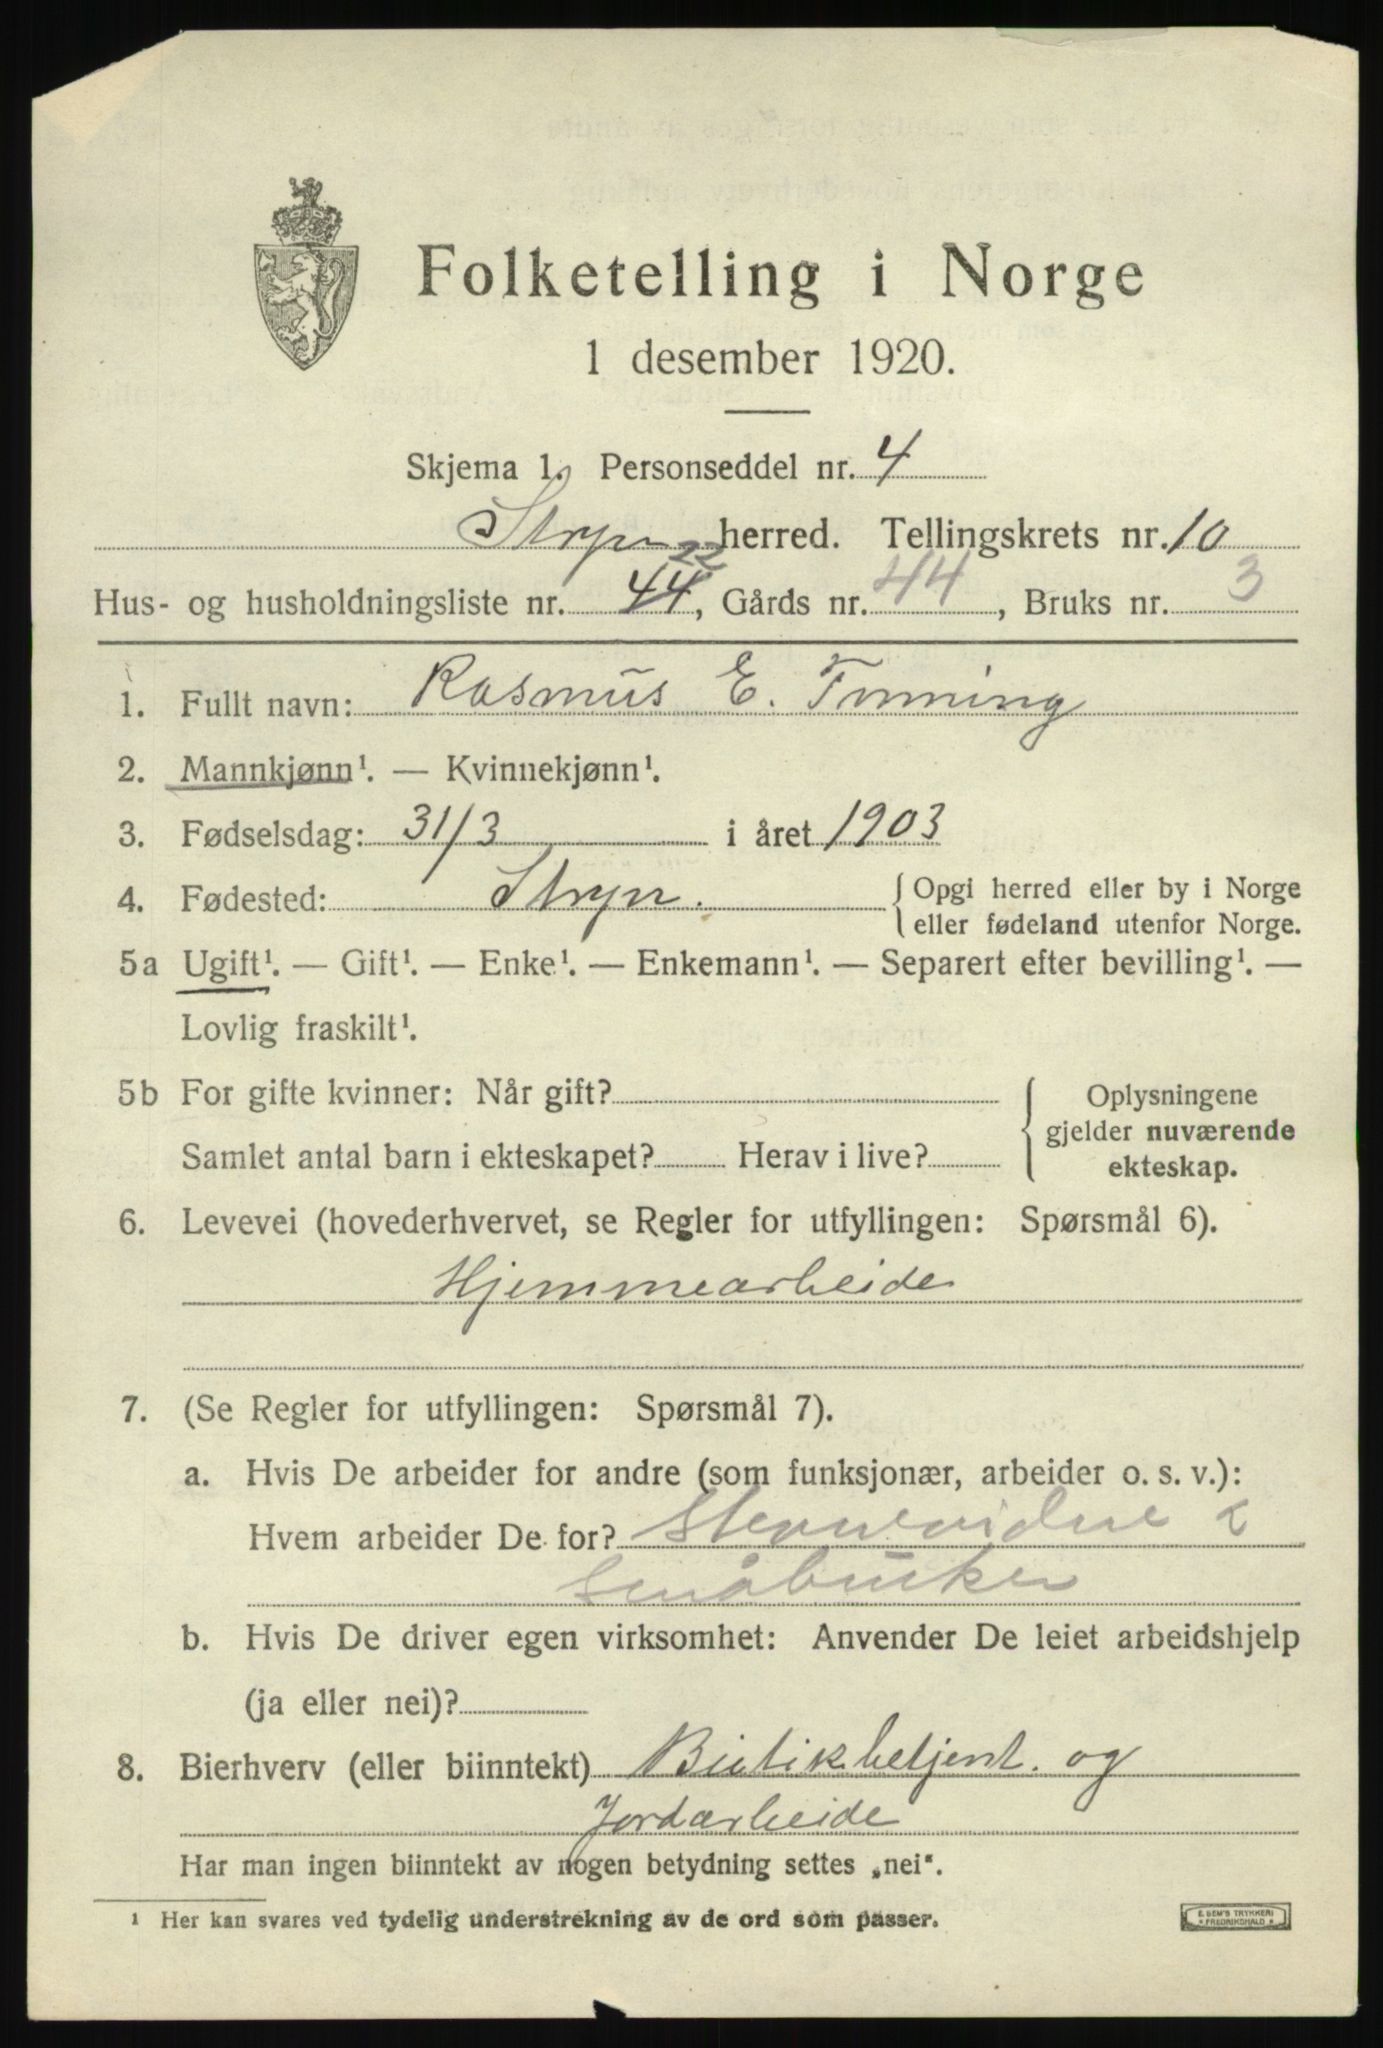 Folketelling i Norge
1 desember 1920.
Skjema 1. Personseddel nr. 4
Stryn herred. Tellingskrets nr. 10
22
Hus- og husholdningsliste nr. 44, Gårds nr. 44, Bruks nr. 3
1. Fullt navn: Rasmus E.
2. Mannkjønn¹. — Kvinnekjønn¹.
3. Fødselsdag: 31/3 i året 1903
4. Fødested: Stryn. { Opgi herred eller by i Norge
eller fødeland utenfor Norge.
5a Ugift¹. — Gift¹. — Enke¹. — Enkemann¹. — Separert efter bevilling¹. —
Lovlig fraskilt¹.
5b For gifte kvinner: Når gift? { Oplysningene
gjelder nuværende
Samlet antal barn i ekteskapet? Herav i live? ekteskap.
6. Levevei (hovederhvervet, se Regler for utfyllingen: Spørsmål 6).
Hjemmearbeide
7. (Se Regler for utfyllingen: Spørsmål 7).
a. Hvis De arbeider for andre (som funksjonær, arbeider o. s. v.):
Hvem arbeider De for?
Småbruker
b. Hvis De driver egen virksomhet: Anvender De leiet arbeidshjelp
(ja eller nei)?
8. Bierhverv (eller biinntekt) Butikbetjent. og
Jordarbeide
Har man ingen biinntekt av nogen betydning settes „nei“.
¹ Her kan svares ved tydelig understrekning av de ord som passer.
E. SEM'S TRYKKERI
* FREDRIKSHALD *